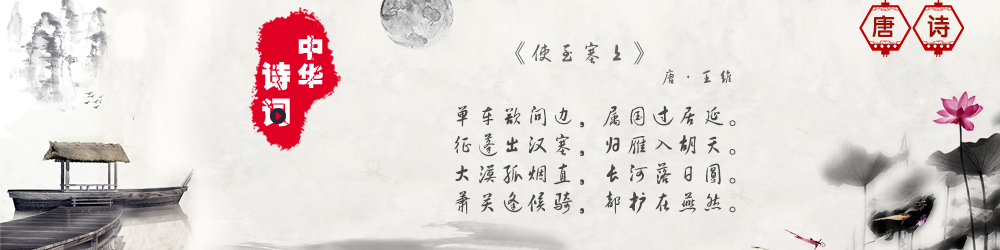 中华
诗词
唐诗
《使至塞上》
唐·王维
单车欲问边，属国过居延。
征蓬出汉塞，归雁入胡天。
大漠孤烟直，长河落日圆。
萧关逢候骑，都护在燕然。